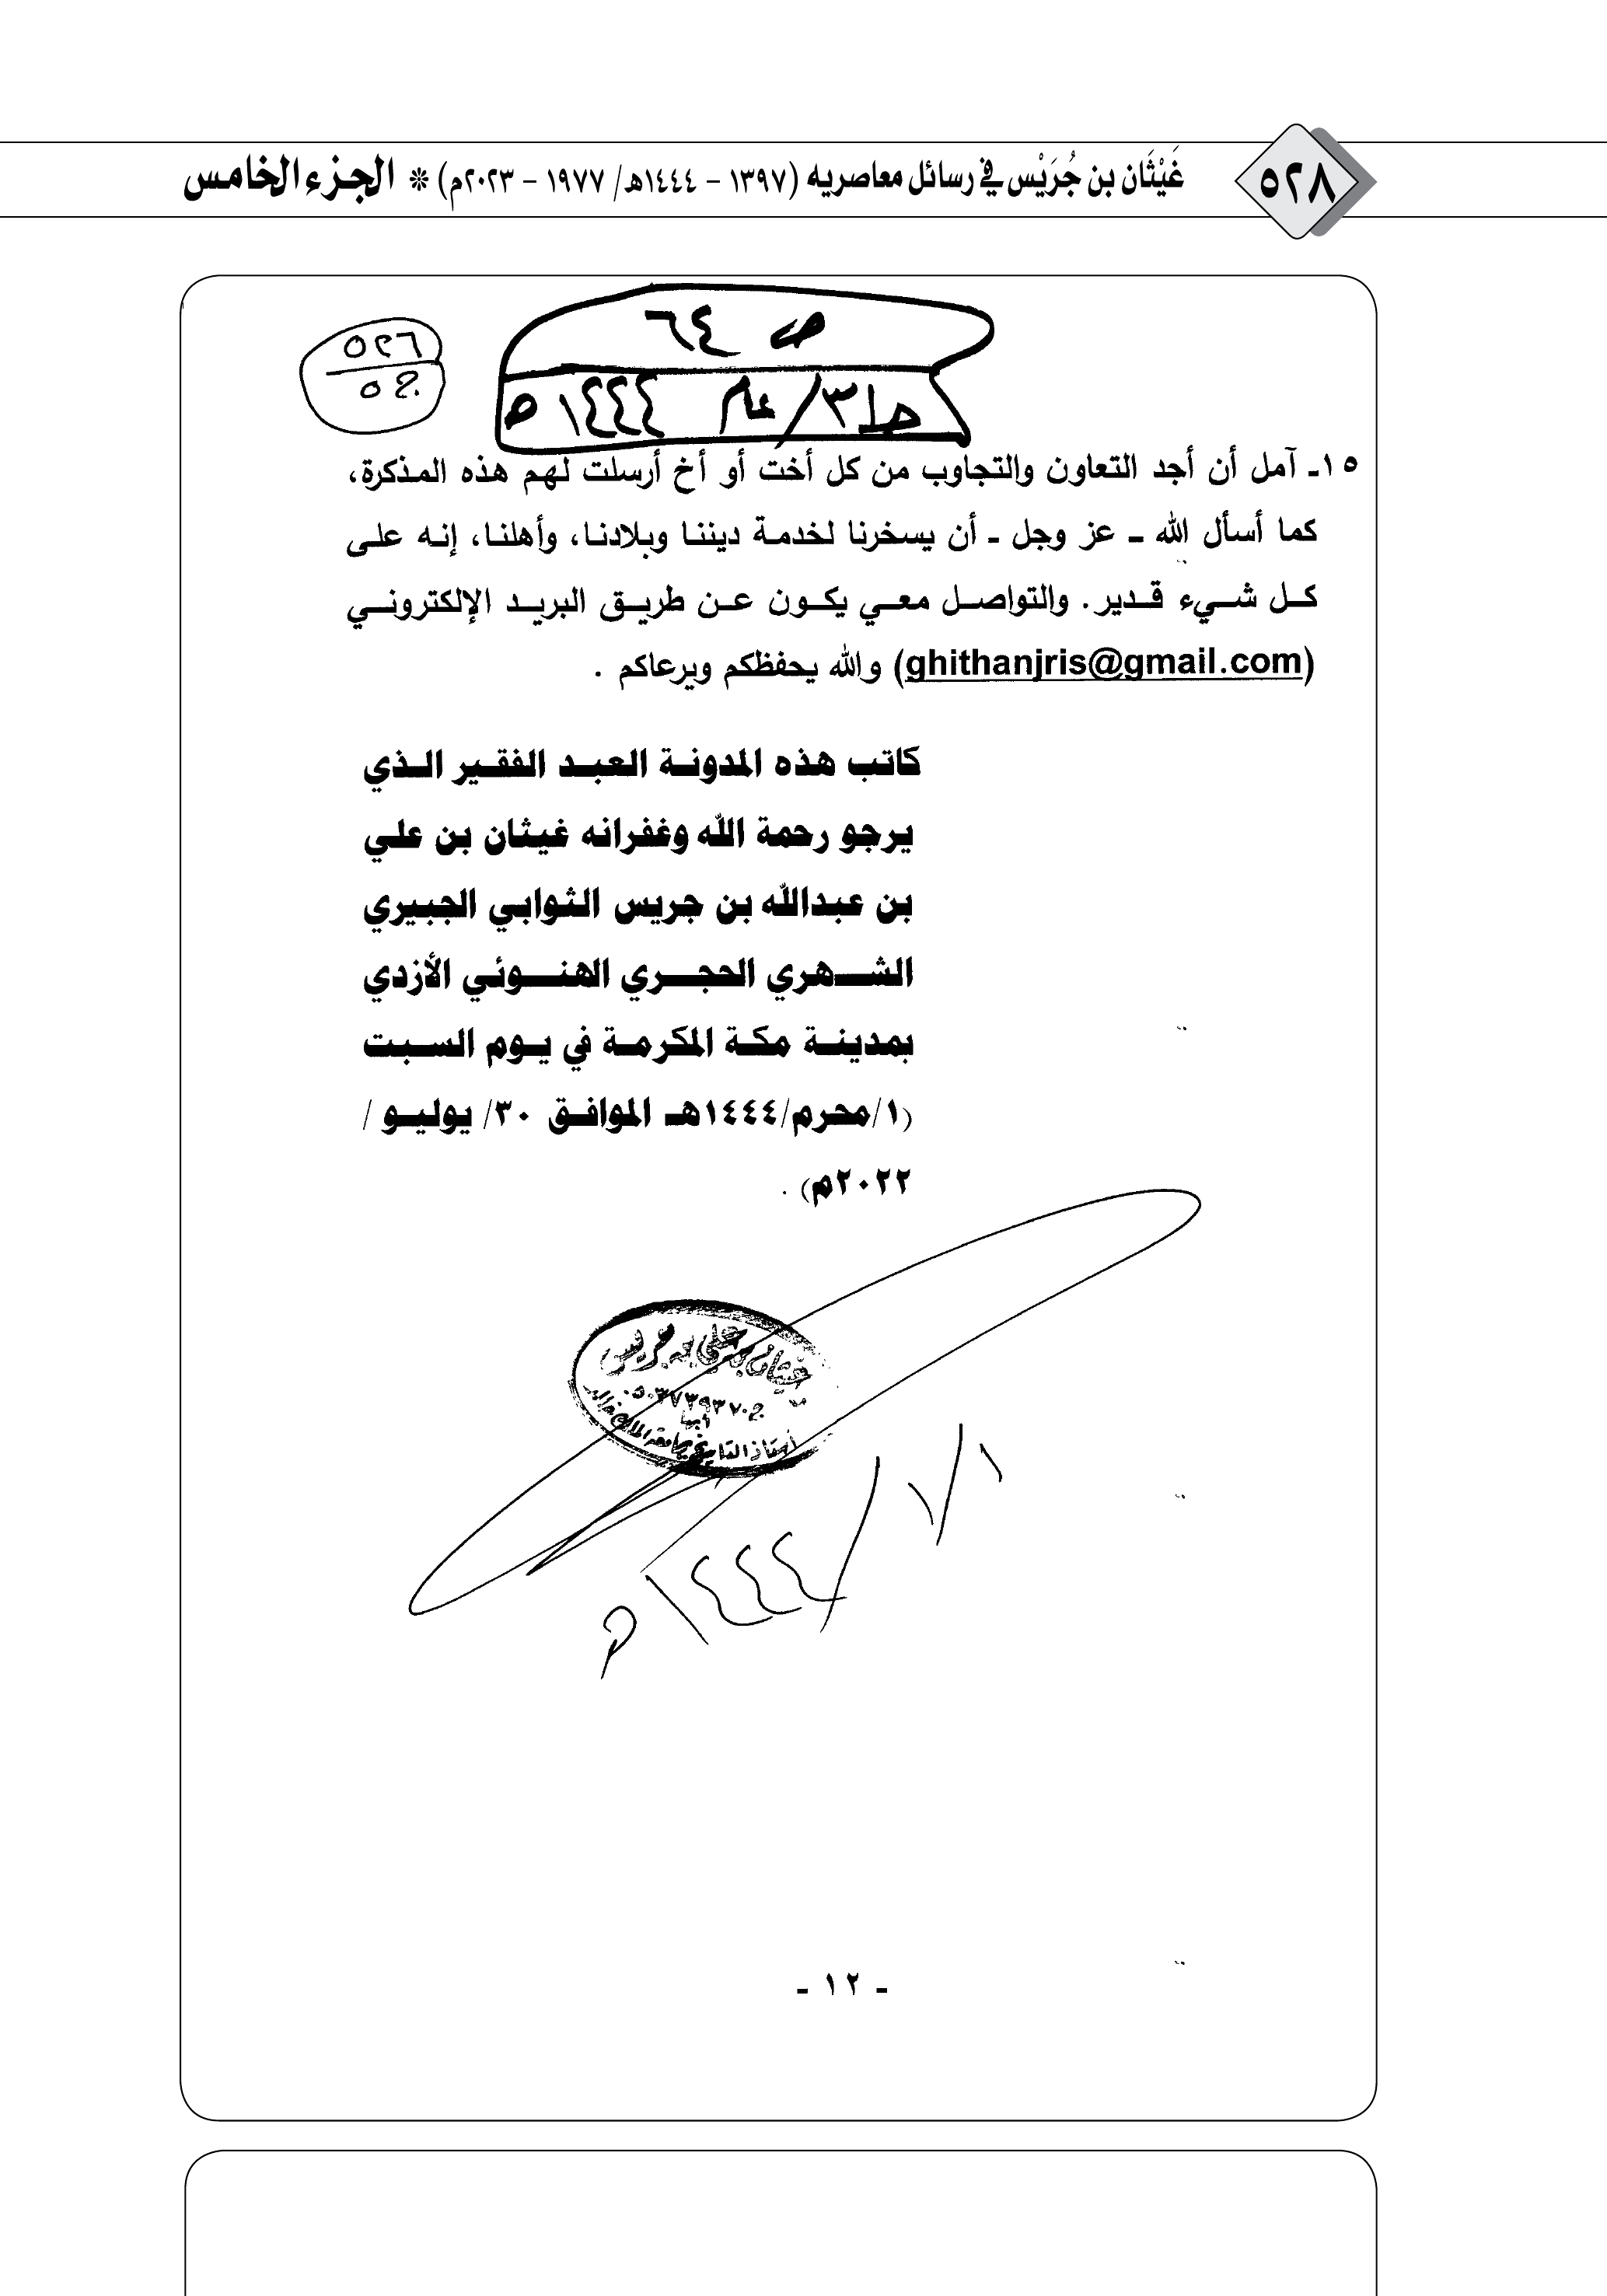 ٥٢٨
غَيْثَان بن جُرَيْس في رسائل معاصريه (١٣٩٧ - ١٤٤٤هـ/ ١٩٧٧ - ٢٠٢٣م) * الجزء الخامس
ص ٦٤
٥٢٦
ط٣١/ عام ١٤٤٤ه
١٥ـ آمل أن أجد التعاون والتجاوب من كل أخت أو أخ أرسلت لهم هذه المذكرة،
كما أسأل الله ـ عز وجل ـ أن يسخرنا لخدمة ديننا وبلادنا، وأهلنا، إنه على
كل شيء قدير. والتواصل معي يكون عن طريق البريد الإلكتروني
(ghithanjris@gmail.com) والله يحفظكم ويرعاكم .
كاتب هذه المدونة العبد الفقير الذي
يرجو رحمة الله وغفرانه غيثان بن علي
بن عبدالله بن جريس الثوابي الجبيري
الشهري الحجري الهنوئي الأزدي
بمدينة مكة المكرمة في يوم السبت
(١/محرم/١٤٤٤هـ الموافق ٣٠/ يوليو /
٢٠٢٢م) .
غيثان بن علي بن جريس
أبها
أستاذ التاريخ بجامعة الملك خالد
١/١/١٤٤٤ه
- ١٢ -